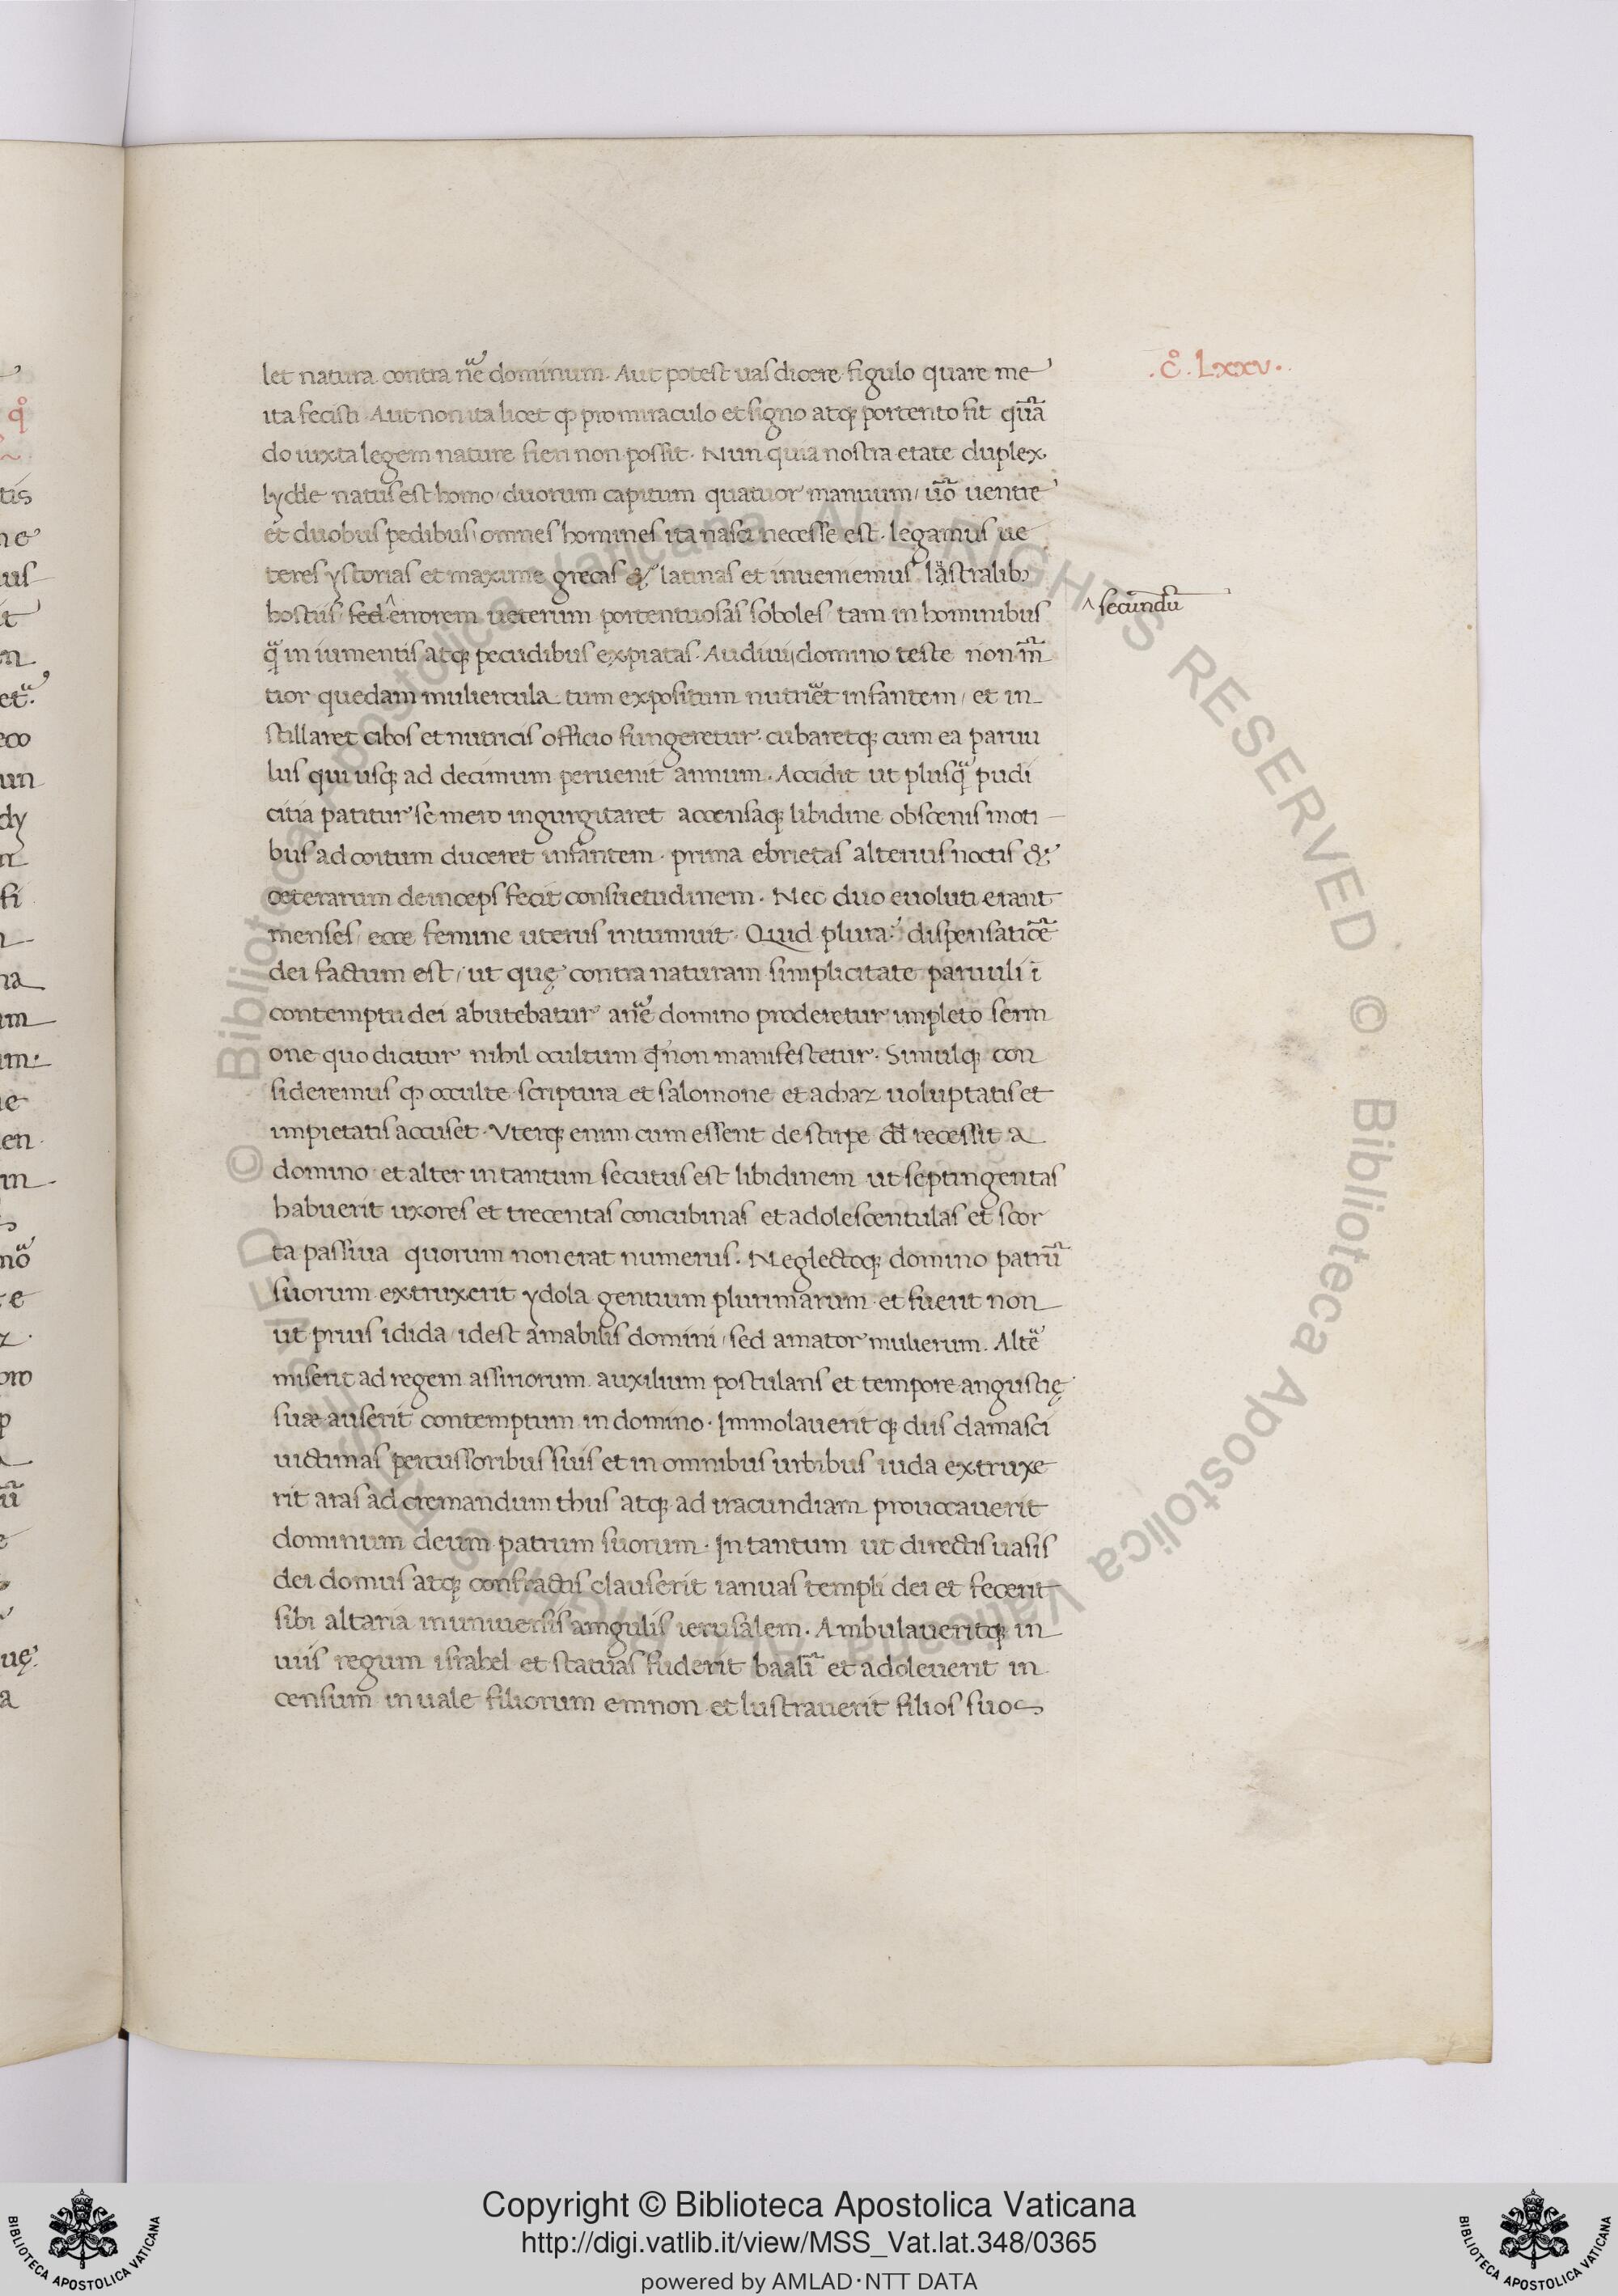 .c̊. Lxxv.
let natura contra nr̃e dominum. Aut potest uas dicere figulo quare me
ita fecisti. Aut non ita licet ꝙ pro miraculo et signo atqꝫ portento fit qũa
do iuxta legem nature fieri non possit. Nun quia nostra etate duplex
lydde natus est homo duorum capitum quatuor manuum, ũo uentre
et duobus pedibus, omnes homines ita nasci necesse est. legamus ue
teres ystorias et maxime grecas & latinas et inueniemus lãstralibꝫ
hostiis, sed ^ errorem ueterum portentuosas soboles tam in hominibus
^ secundũ
q̃ in iumentis atqꝫ pecudibus expiatas. Audiui, domino teste non m̃
tior quedam muliercula tum expositum nutriẽt infantem, et in
stillaret cibos et nutricis officio fungeretur. cubaretqꝫ cum ea paruu
lus qui usqꝫ ad decimum peruenit annum. Accidit ut plusq̃ pudi
citia patitur se mero ingurgitaret accensaqꝫ libidine obscenis moti
bus ad coitum duceret infantem. prima ebrietas alterius noctis &
ceterarum deinceps fecit consuetudinem. Nec duo euoluti erant
menses, ecce femine uterus intumuit. Quid plura? dispensatiõe
dei factum est, ut quę contra naturam simplicitate paruuli ĩ
contemptu dei abutebatur a nr̃e domino proderetur impleto serm
one quo dicitur nihil ocultum q̃ non manifestetur. Simulqꝫ con
sideremus ꝙ occulte scriptura et salomone et achaz uoluptatis et
impietatis accuset. Vterqꝫ enim cum essent de stirpe dd̃ recessit a
domino et alter in tantum secutus est libidinem ut septingentas
habuerit uxores et trecentas concubinas et adolescentulas et scor
ta passiua quorum non erat numerus. Neglectoqꝫ domino patrũ
suorum extruxerit ydola gentium plurimarum et fuerit non
ut prius idida, idest amabilis domini, sed amator mulierum. Altẽ
miserit ad regem assiriorum auxilium postulans et tempore angustię
suæ auserit contemptum in domino. Immolaueritqꝫ diis damasci
uictimas percussoribus suis et in omnibus urbibus iuda extruxe
rit aras ad cremandum thus atqꝫ ad iracundiam prouocauerit
dominum deum patrum suorum. In tantum ut directis uasis
dei domus atqꝫ confractis clauserit ianuas templi dei et fecerit
sibi altaria in uniuersis amgulis ierusalem. Ambulaueritqꝫ in
uiis regum israhel et statuas fuderit baalĩ et adoleuerit in
censum in uale filiorum emnon et lustrauerit filios suos
Copyright © Biblioteca Apostolica Vaticana
http://digi.vatlib.it/view/MSS_Vat.lat.348/0365
powered by AMLAD·NTT DATA
BIBLIOTECA APOSTOLICA VATICANA
BIBLIOTECA APOSTOLICA VATICANA